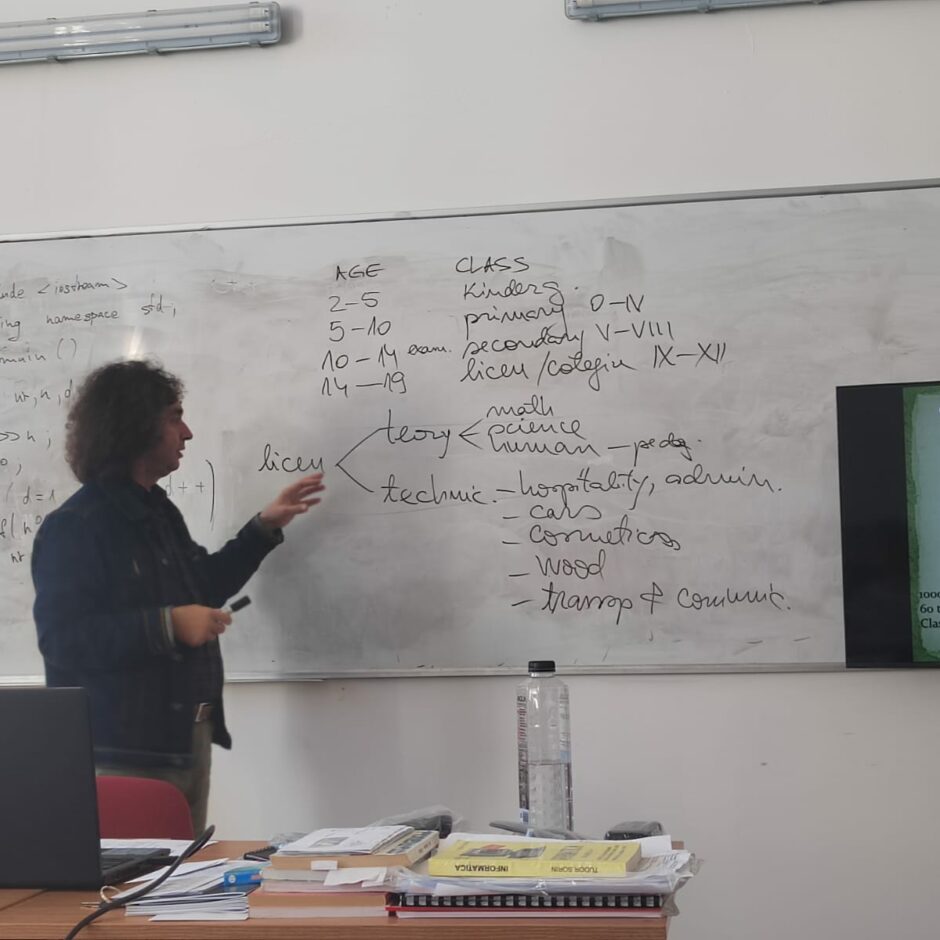 <iostream>
namespace std;
main ()
nr, n, d
>> n ;
d = 1
d++)
nr
AGE CLASS
2-5 Kinderg.
5-10 primary O-IV
10-14 exam. secondary V-VIII
14-19 liceu/colegiu IX-XII
liceu
teory
math
science
human - pedag.
technic. - hospitality, admin.
- cars
- cosmetics
- wood
- transp & communic.
1000
60
Clas
INFORMATICA
TUDOR SORIN